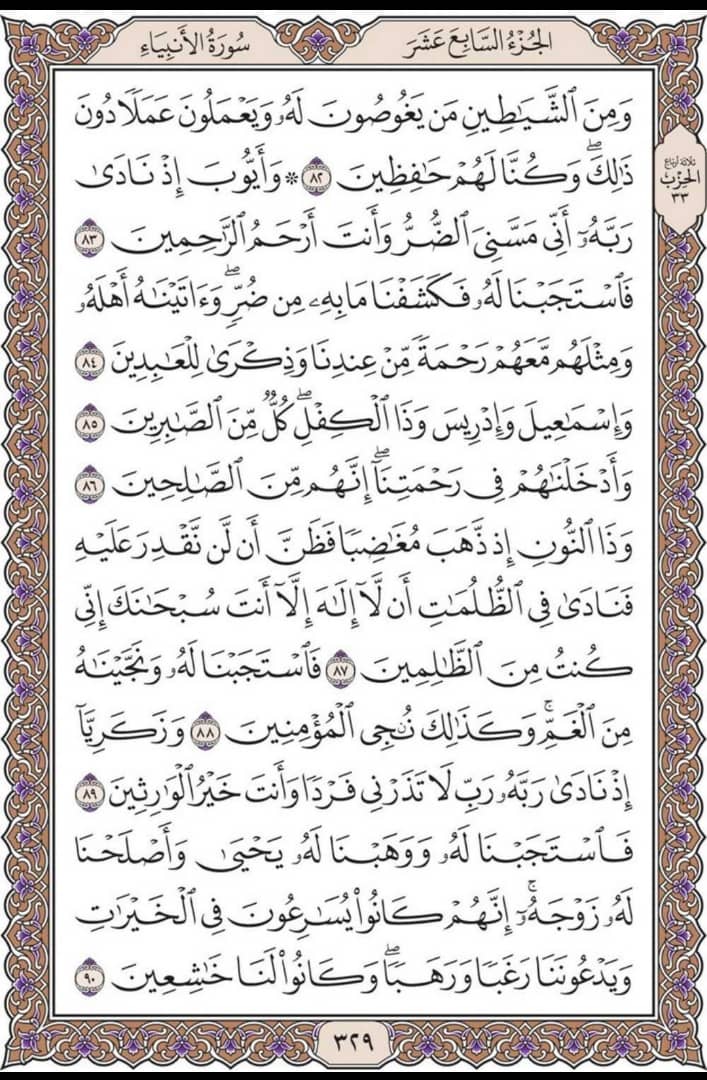 الجُزْءُ السَّابِعَ عَشَرَ
سُورَةُ الأَنبِيَاءِ
وَمِنَ ٱلشَّيَٰطِينِ مَن يَغُوصُونَ لَهُۥ وَيَعْمَلُونَ عَمَلًا دُونَ
ذَٰلِكَۖ وَكُنَّا لَهُمْ حَٰفِظِينَ ٨٢ ۞ وَأَيُّوبَ إِذْ نَادَىٰ
رَبَّهُۥٓ أَنِّى مَسَّنِىَ ٱلضُّرُّ وَأَنتَ أَرْحَمُ ٱلرَّٰحِمِينَ ٨٣
فَٱسْتَجَبْنَا لَهُۥ فَكَشَفْنَا مَا بِهِۦ مِن ضُرٍّۖ وَءَاتَيْنَٰهُ أَهْلَهُۥ
وَمِثْلَهُم مَّعَهُمْ رَحْمَةً مِّنْ عِندِنَا وَذِكْرَىٰ لِلْعَٰبِدِينَ ٨٤
وَإِسْمَٰعِيلَ وَإِدْرِيسَ وَذَا ٱلْكِفْلِۖ كُلٌّ مِّنَ ٱلصَّٰبِرِينَ ٨٥
وَأَدْخَلْنَٰهُمْ فِى رَحْمَتِنَآۖ إِنَّهُم مِّنَ ٱلصَّٰلِحِينَ ٨٦
وَذَا ٱلنُّونِ إِذ ذَّهَبَ مُغَٰضِبًا فَظَنَّ أَن لَّن نَّقْدِرَ عَلَيْهِ
فَنَادَىٰ فِى ٱلظُّلُمَٰتِ أَن لَّآ إِلَٰهَ إِلَّآ أَنتَ سُبْحَٰنَكَ إِنِّى
كُنتُ مِنَ ٱلظَّٰلِمِينَ ٨٧ فَٱسْتَجَبْنَا لَهُۥ وَنَجَّيْنَٰهُ
مِنَ ٱلْغَمِّۚ وَكَذَٰلِكَ نُۨجِى ٱلْمُؤْمِنِينَ ٨٨ وَزَكَرِيَّآ
إِذْ نَادَىٰ رَبَّهُۥ رَبِّ لَا تَذَرْنِى فَرْدًا وَأَنتَ خَيْرُ ٱلْوَٰرِثِينَ ٨٩
فَٱسْتَجَبْنَا لَهُۥ وَوَهَبْنَا لَهُۥ يَحْيَىٰ وَأَصْلَحْنَا
لَهُۥ زَوْجَهُۥٓۚ إِنَّهُمْ كَانُوا۟ يُسَٰرِعُونَ فِى ٱلْخَيْرَٰتِ
وَيَدْعُونَنَا رَغَبًا وَرَهَبًاۖ وَكَانُوا۟ لَنَا خَٰشِعِينَ ٩٠
ثلاثة أرباع
الحزب
٣٣
٣٢٩